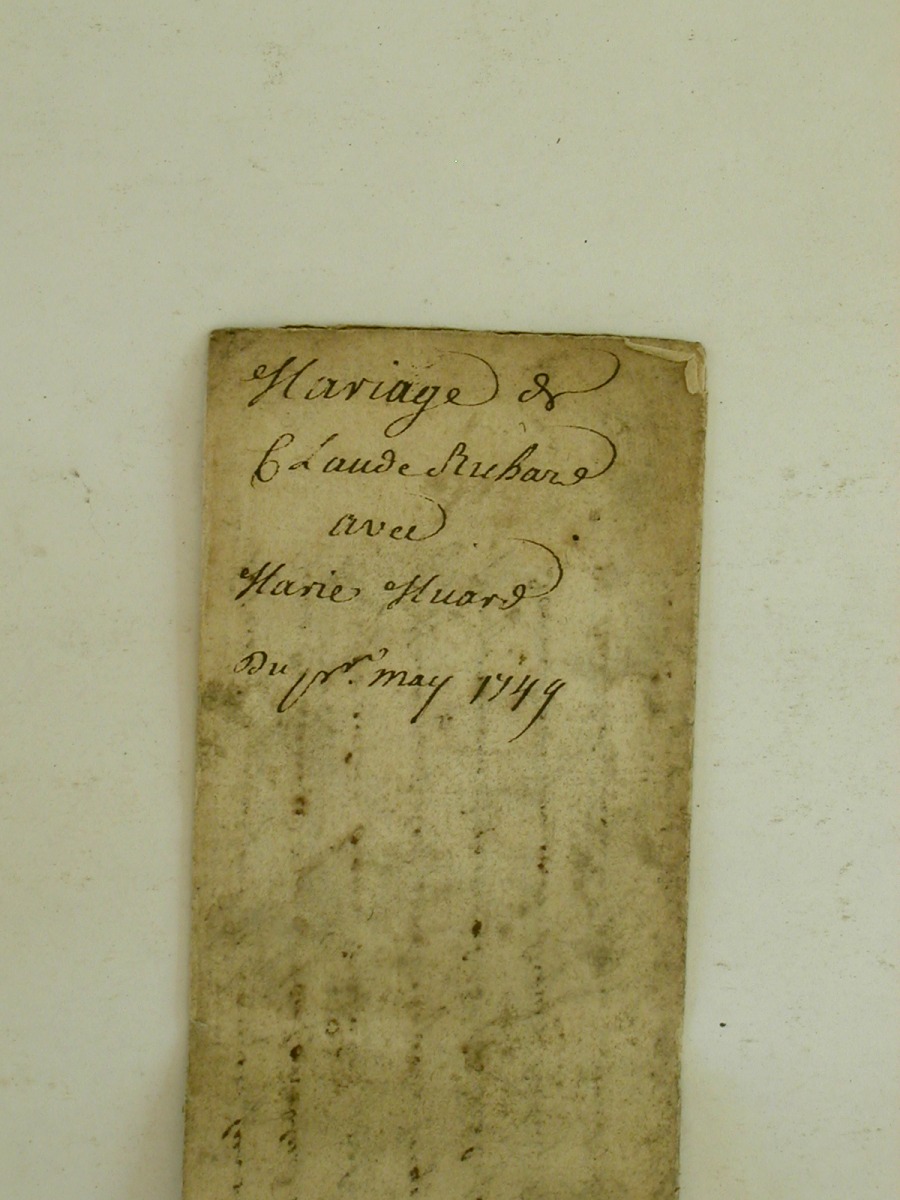 Mariage de
Claude Richard
avec
Marie Huard
Du pr. may 1749